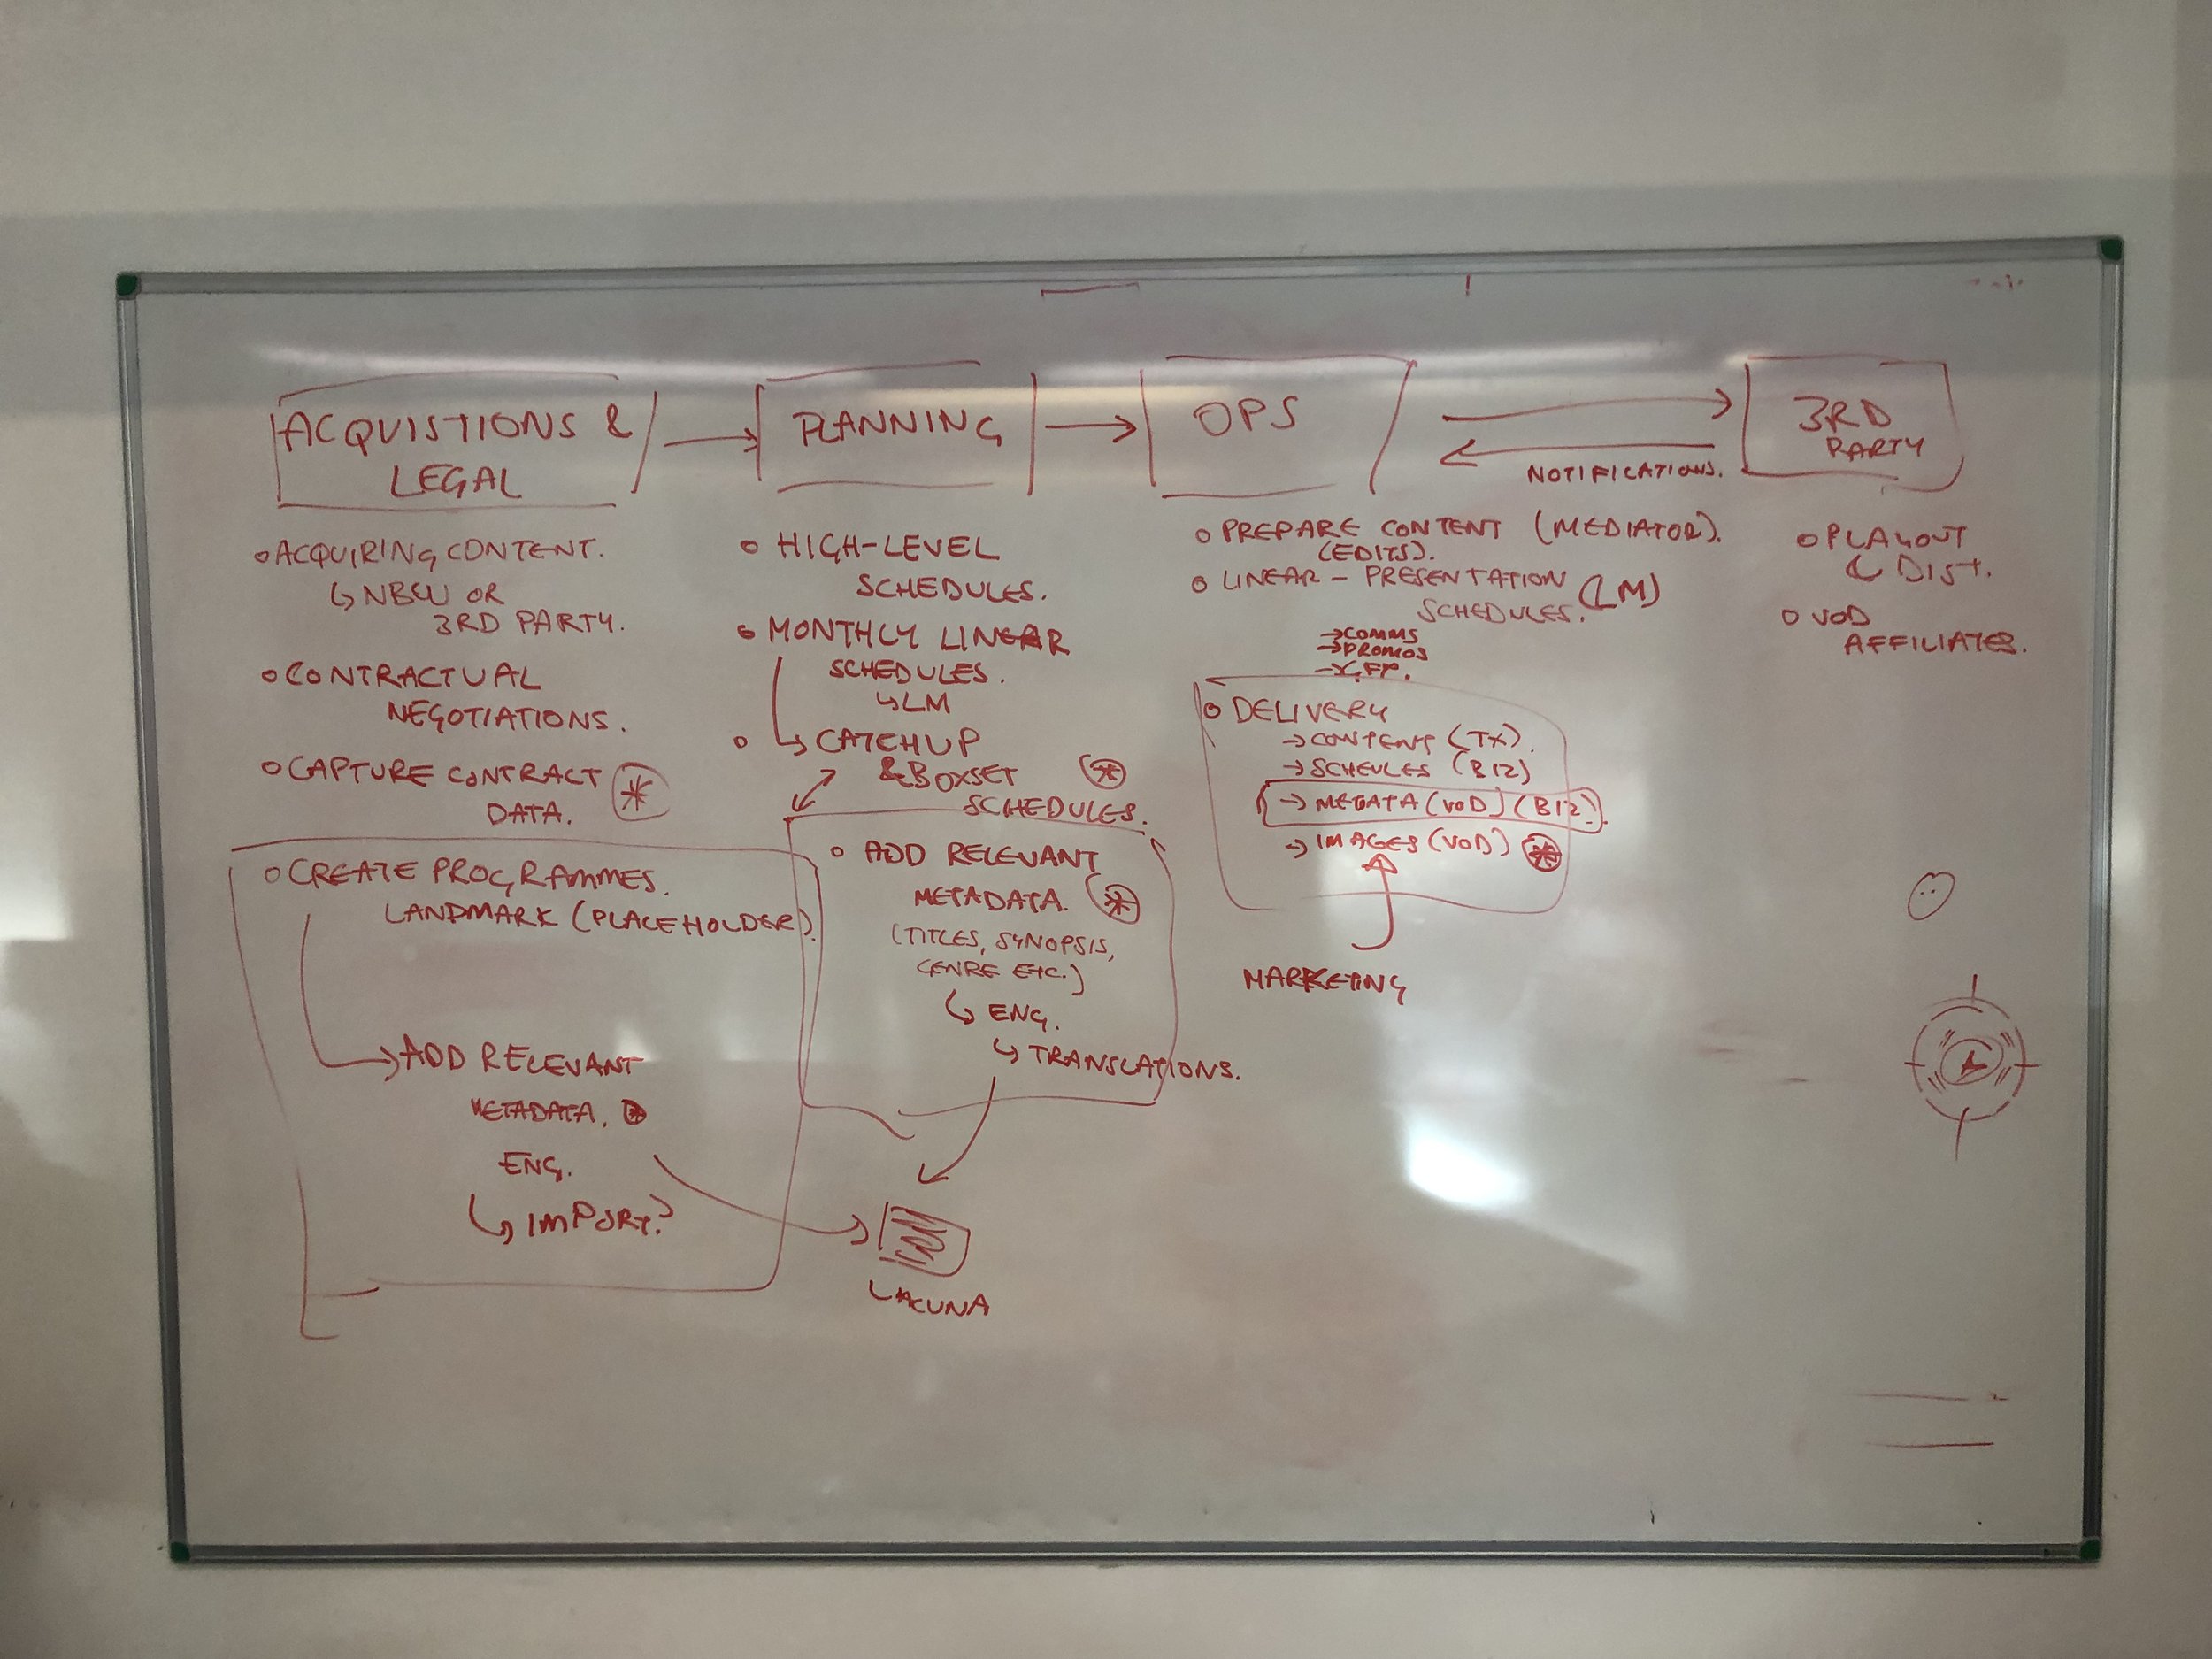 ACQUISTIONS &
LEGAL
ACQUIRING CONTENT.
↳ NBCU OR
3RD PARTY.
CONTRACTUAL
NEGOTIATIONS.
CAPTURE CONTRACT
DATA.
CREATE PROGRAMMES.
LANDMARK (PLACEHOLDER).
ADD RELEVANT
METADATA.
ENG.
↳ IMPORT?
PLANNING
HIGH-LEVEL
SCHEDULES.
MONTHLY LINEAR
SCHEDULES.
↳ LM
↳ CATCHUP
& BOXSET
SCHEDULES.
ADD RELEVANT
METADATA.
(TITLES, SYNOPSIS,
GENRE ETC.)
↳ ENG.
↳ TRANSLATIONS.
LACUNA
OPS
PREPARE CONTENT (MEDIATOR).
(EDITS).
LINEAR - PRESENTATION (LM)
SCHEDULES.
→ COMMS
→ PROMOS
DELIVERY
→ CONTENT (TX).
→ SCHEULES (B12)
→ METATA (VOD) (B12).
→ IMAGES (VOD)
MARKETING
NOTIFICATIONS.
3RD
PARTY
PLAYOUT
& DIST.
VOD
AFFILIATES.